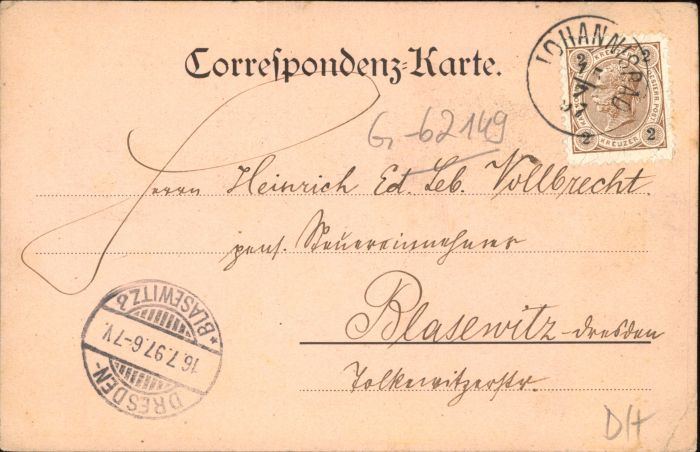 Correspondenz-Karte.
JOHANNISBAD
2 KREUZER 2
2 2
G-62149
Herrn Heinrich Ed. Leb. Vollbrecht
pens. Steuereinnehmer
Blasewitz-Dresden
Tolkewitzerstr.
DRESDEN-
16.7.97.6-7V.
*BLASEWITZ b
D/H